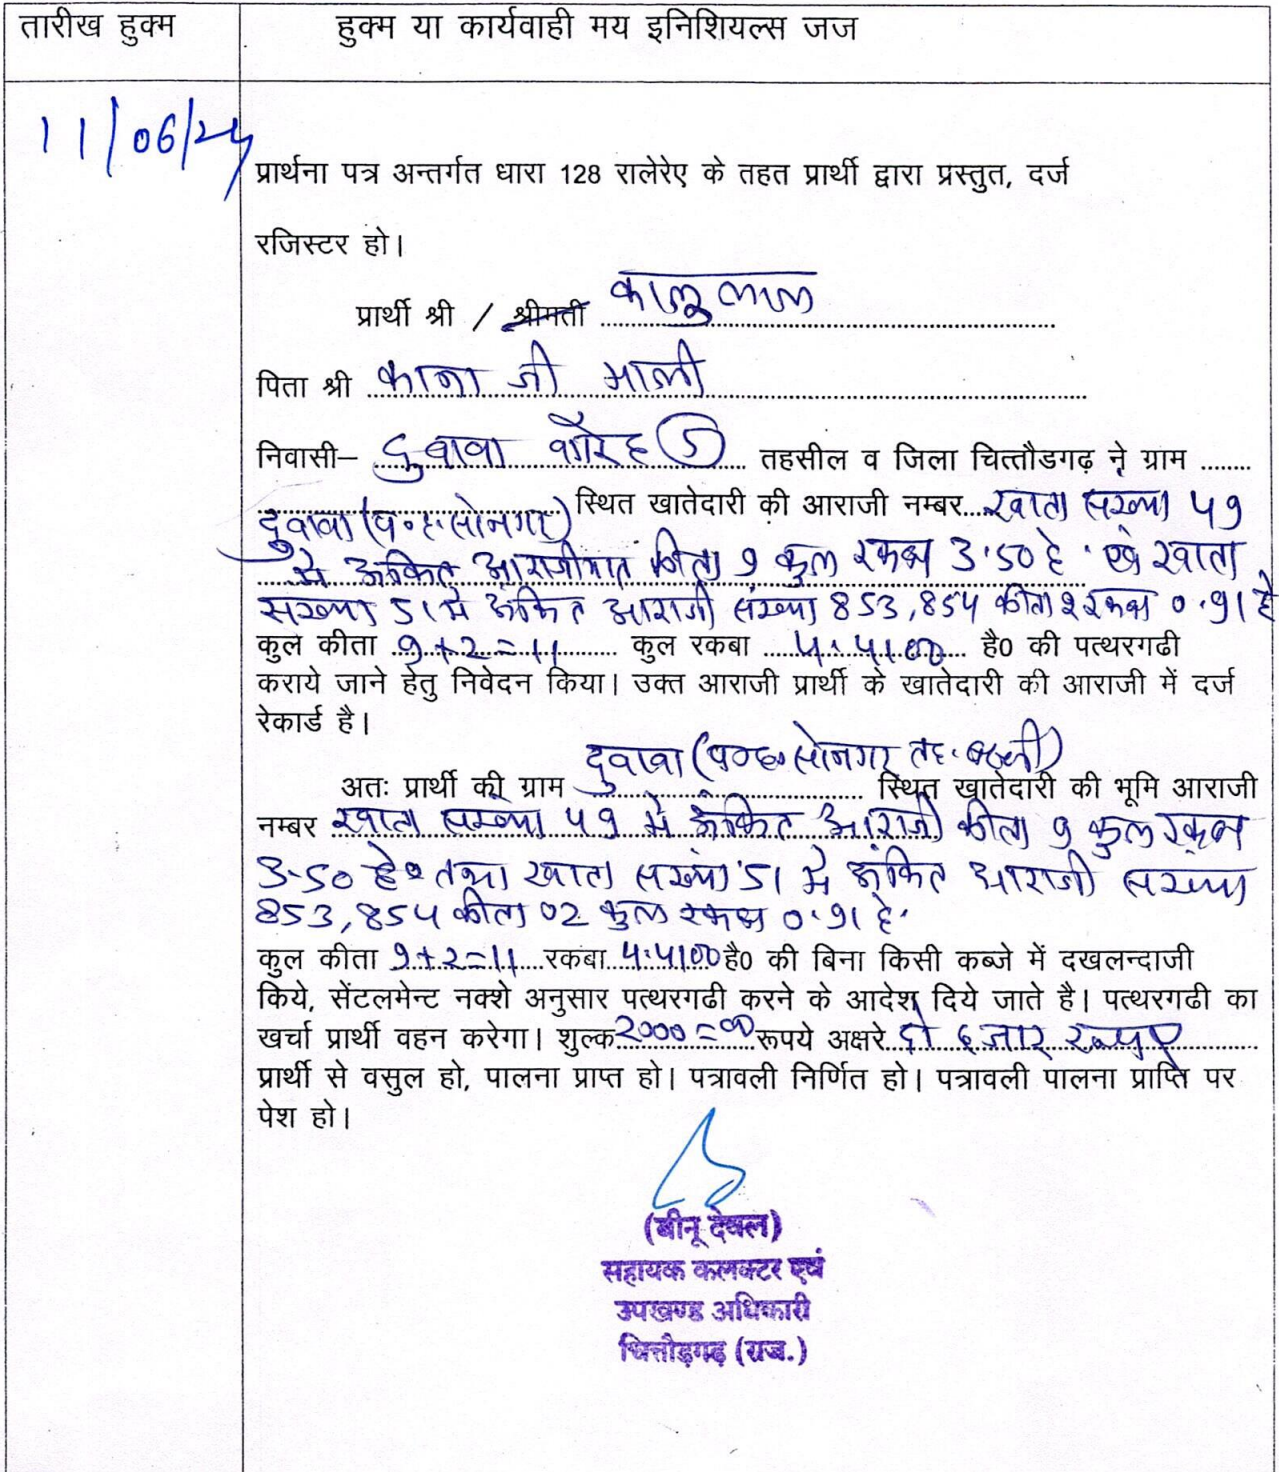 तारीख हुक्म
हुक्म या कार्यवाही मय इनिशियल्स जज
11/06/24
प्रार्थना पत्र अन्तर्गत धारा 128 रालेरेए के तहत प्रार्थी द्वारा प्रस्तुत, दर्ज
रजिस्टर हो।
प्रार्थी श्री / श्रीमती कालू लाल
पिता श्री काना जी माली
निवासी– दुवावा तहसील व जिला चित्तौडगढ़ ने ग्राम ........
दुवावा (प०ह० सोनगर) स्थित खातेदारी की आराजी नम्बर... खाता संख्या 49
मे अंकित आराजीयात कीता 9 कुल रकबा 3.50 हे. एवं खाता
संख्या 51 मे अंकित आराजी संख्या 853,854 कीता 2 रकबा 0.91 हे
कुल कीता 9+2=11 कुल रकबा 4.4100 है0 की पत्थरगढी
कराये जाने हेतु निवेदन किया। उक्त आराजी प्रार्थी के खातेदारी की आराजी में दर्ज
रेकार्ड है।
अतः प्रार्थी की ग्राम दुवावा (प०ह० सोनगर तह. बस्सी) स्थित खातेदारी की भूमि आराजी
नम्बर खाता संख्या 49 मे अंकित आराजी कीता 9 कुल रकबा
3.50 हे० तथा खाता संख्या 51 मे अंकित आराजी संख्या
853,854 कीता 02 कुल रकबा 0.91 हे.
कुल कीता 9+2=11 रकबा 4.4100 है0 की बिना किसी कब्जे में दखलन्दाजी
किये, सेंटलमेन्ट नक्शे अनुसार पत्थरगढी करने के आदेश दिये जाते है। पत्थरगढी का
खर्चा प्रार्थी वहन करेगा। शुल्क 2000=00 रूपये अक्षरे दो हजार रूपए
प्रार्थी से वसुल हो, पालना प्राप्त हो। पत्रावली निर्णित हो। पत्रावली पालना प्राप्ति पर
पेश हो।
(बीनू देवल)
सहायक कलक्टर एवं
उपखण्ड अधिकारी
चित्तौड़गढ़ (राज.)